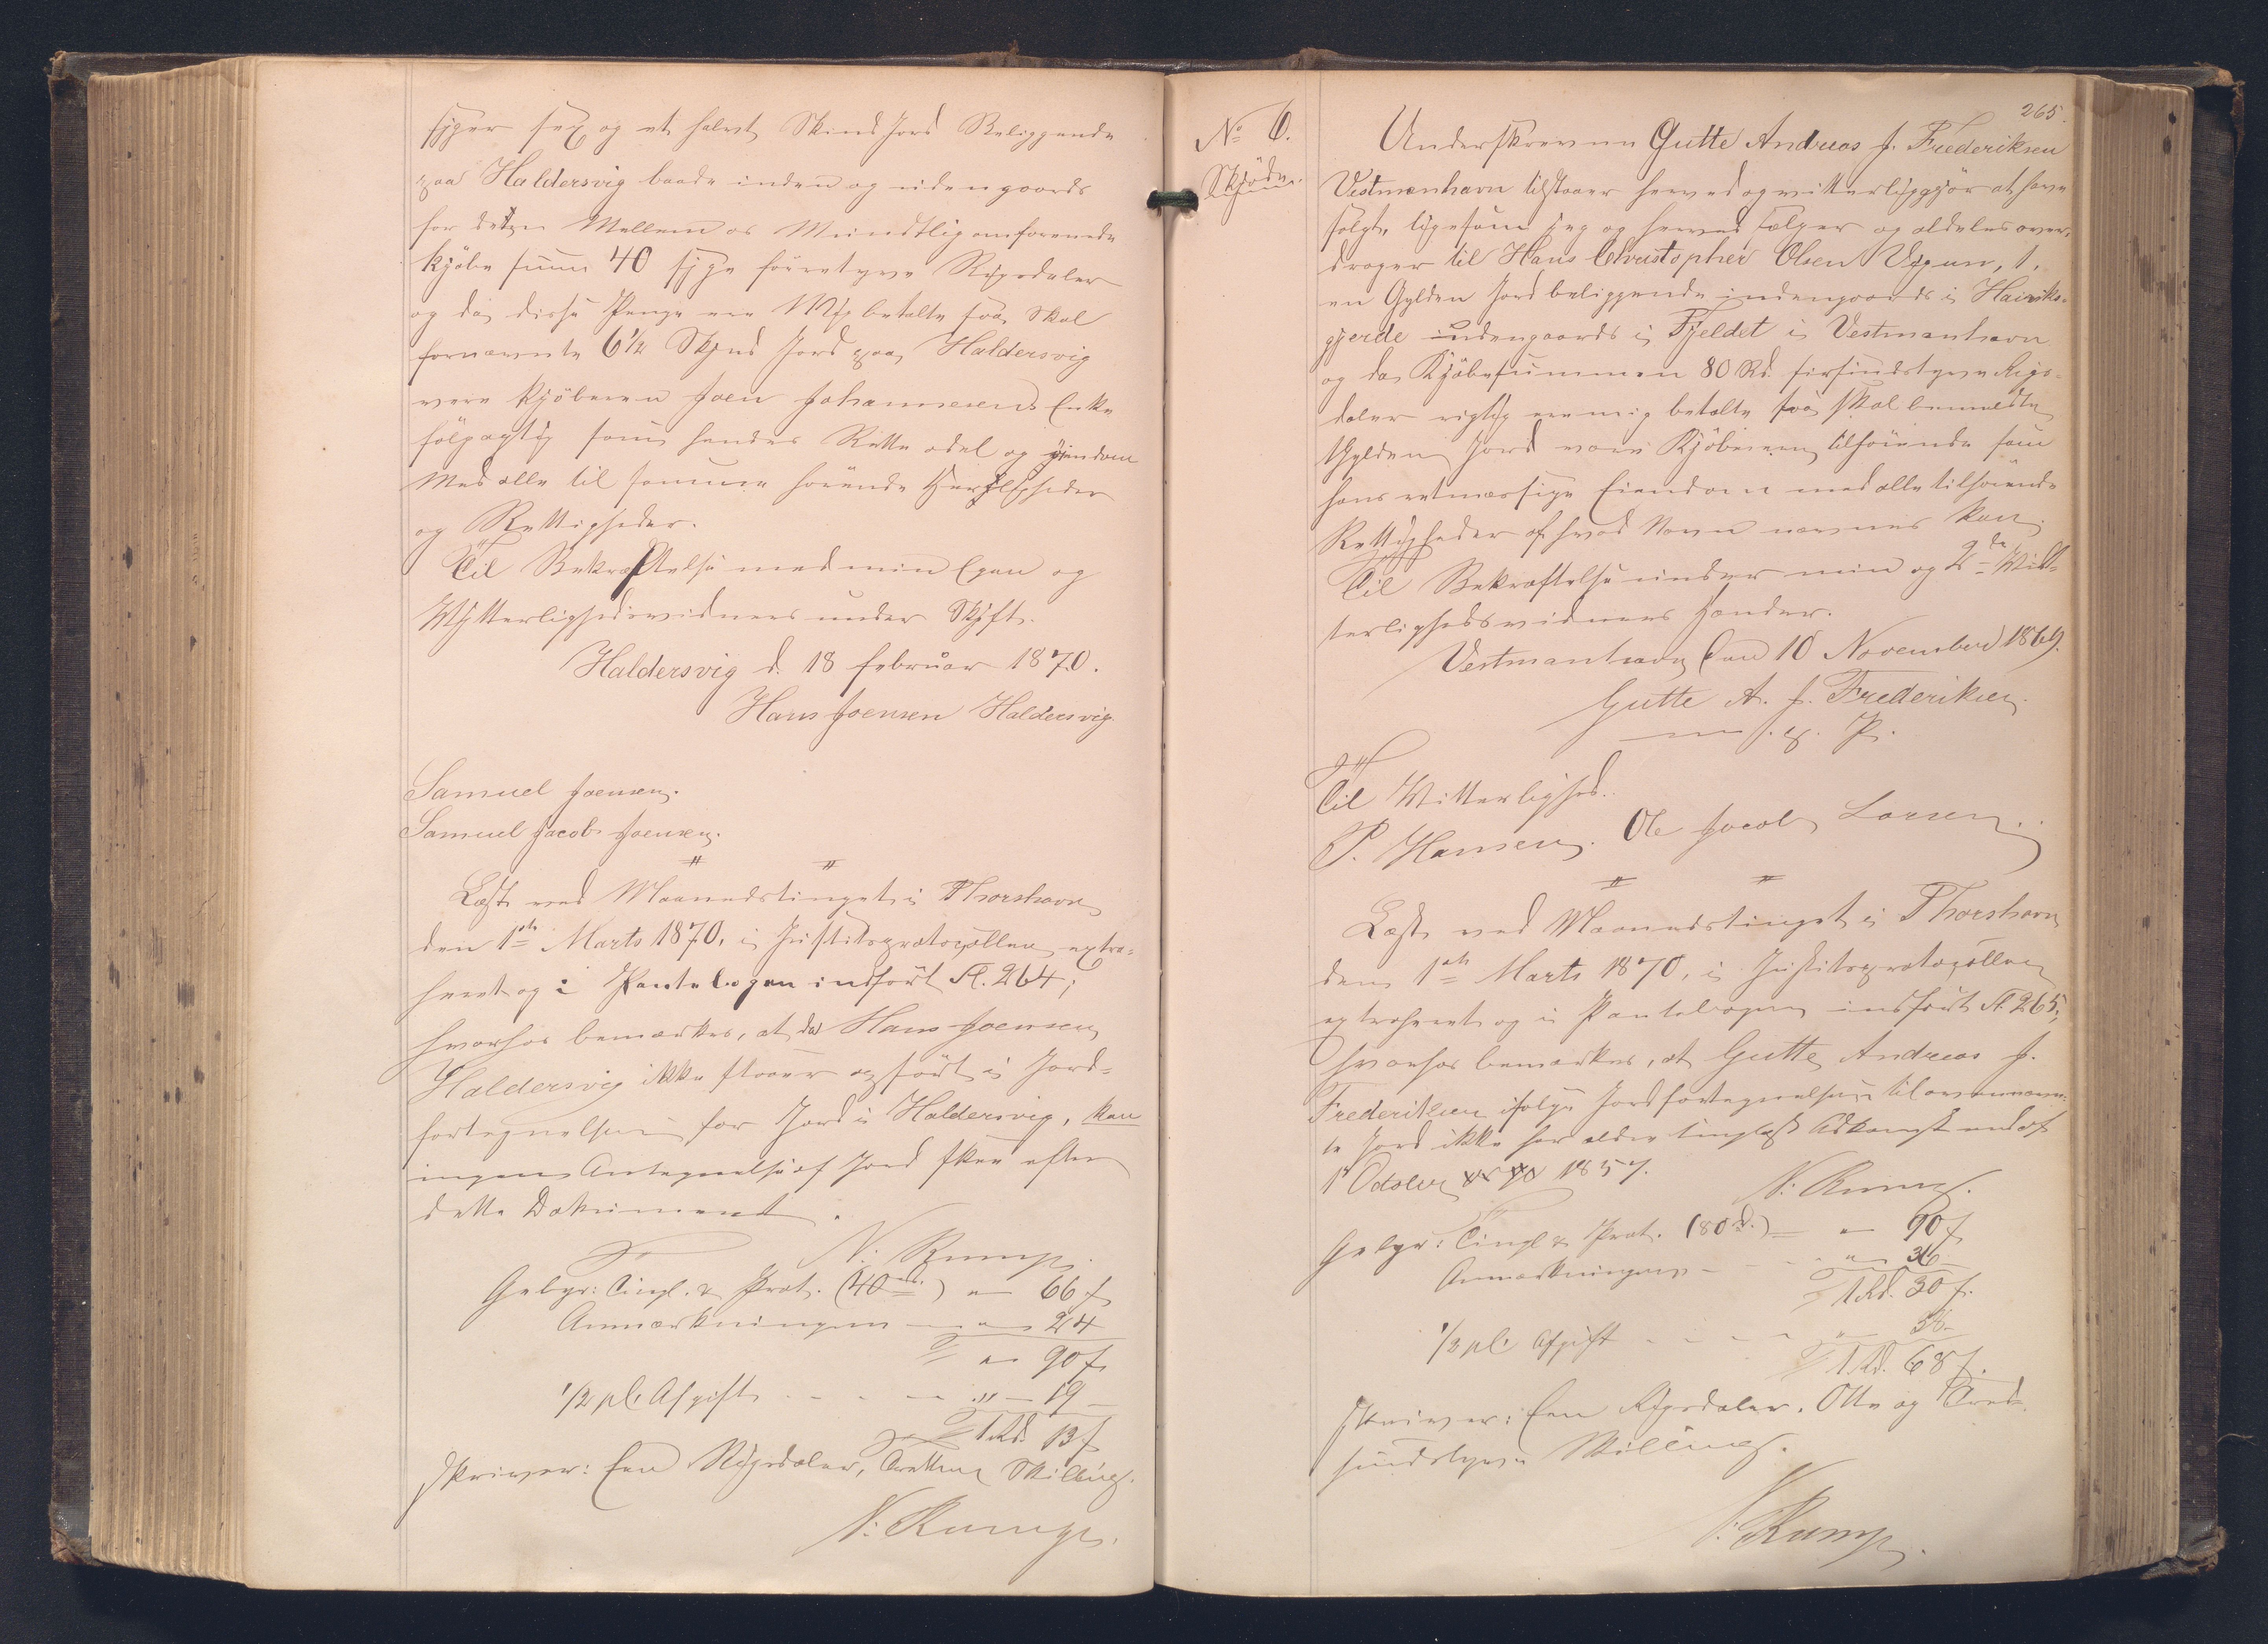 siger sex og et halvt Skind Jord Beliggende
paa Haldersvig baade inden og udengaards
for den Mellem os Mundtlig omforenede
Kjöbe sum 40 sige fürretyve Rigsdaler
og da disse Penge ere Mig betalte saa Skal
fornævnte 6 1/2 Skind Jord paa Haldersvig
være Kjöberen Joen Johannesens Enke
fölgagtig som hendes Rette odel og eiendom
Med alle til samme hörende Herligheder
og Rettigheder.
Til Bekræftelse med min Egen og
Wytterlighedsvidners under Skrift.
Haldersvig d. 18 februar 1870.
Hans Joensen Haldersvig.
Samuel Joensen.
Samuel Jacob Joensen.
Læst ved Maanedstinget i Thorshavn
den 1ste Marts 1870, i Justitsprotocollen extra-
heret og i Pantebogen indfört Fl. 264;
hvorhos bemærkes, at da Hans Joensen
Haldersvig ikke staaer opfört i Jord-
fortegnelsen for Jord i Haldersvig, kan
ingen Antegnelse af Jord skee efter
dette Dokument.
N. Rump.
Gebyr: Tingl. & Prot. (40 rd.) " 66 s
Anmærkningen " 24
" 90 s
1/2 pC. Afgift " 19
1 Rd. 13 s
skriver: Een Rigsdaler, Tretten Skilling.
N. Rump.
265.
No 6.
Skjöde.
Underskrevne Gutte Andreas J. Frederiksen
Vestmanhavn tilstaaer herved og vitterliggjör at have
solgt, ligesom jeg og herved sælger og aldeles over-
drager til Hans Christopher Olsen Vigum, 1,
en Gylden Jord beliggende indengaards i Hairiks-
gjerde udengaards i Fjeldet i Vestmanhavn
og da Kjöbesummen 80 Rd. firsindstyve Rigs-
daler rigtig ere mig betalte saa skal bemeldte
Gylden Jord være Kjöberen tilhörende som
hans retmæssige Eiendom med alle tilhörende
Rettigheder af hvad Navn nævnes kan
Til Bekræftelse under min og 2de Vit-
terlighedsvidners Hænder.
Vestmanhavn Den 10 November 1869.
Gutte A. J. Frederiksen
m. f. P.
Til Vitterlighed.
P. Hansen. Ole Jacob Larsen.
Læst ved Maanedstinget i Thorshavn
den 1ste Marts 1870, i Justitsprotocollen
extraheret og i Pantebogen indfört Fl. 265,
hvorhos bemærkes, at Gutte Andreas J.
Frederiksen ifölge Jordfortegnelsen til ovennævn-
te Jord ikke har ældre tinglæst Adkomst end af
1 October 1857.
N. Rump.
Gebyr: Tingl & Prot. (80 rd.) " 90 s
Anmærkningen " 36
1 Rd. 30 s.
1/2 pC. Afgift " 38
1 Rd. 68 s.
skriver: Een Rigsdaler, Otte og Tred-
sindstyve Skilling.
N. Rump.